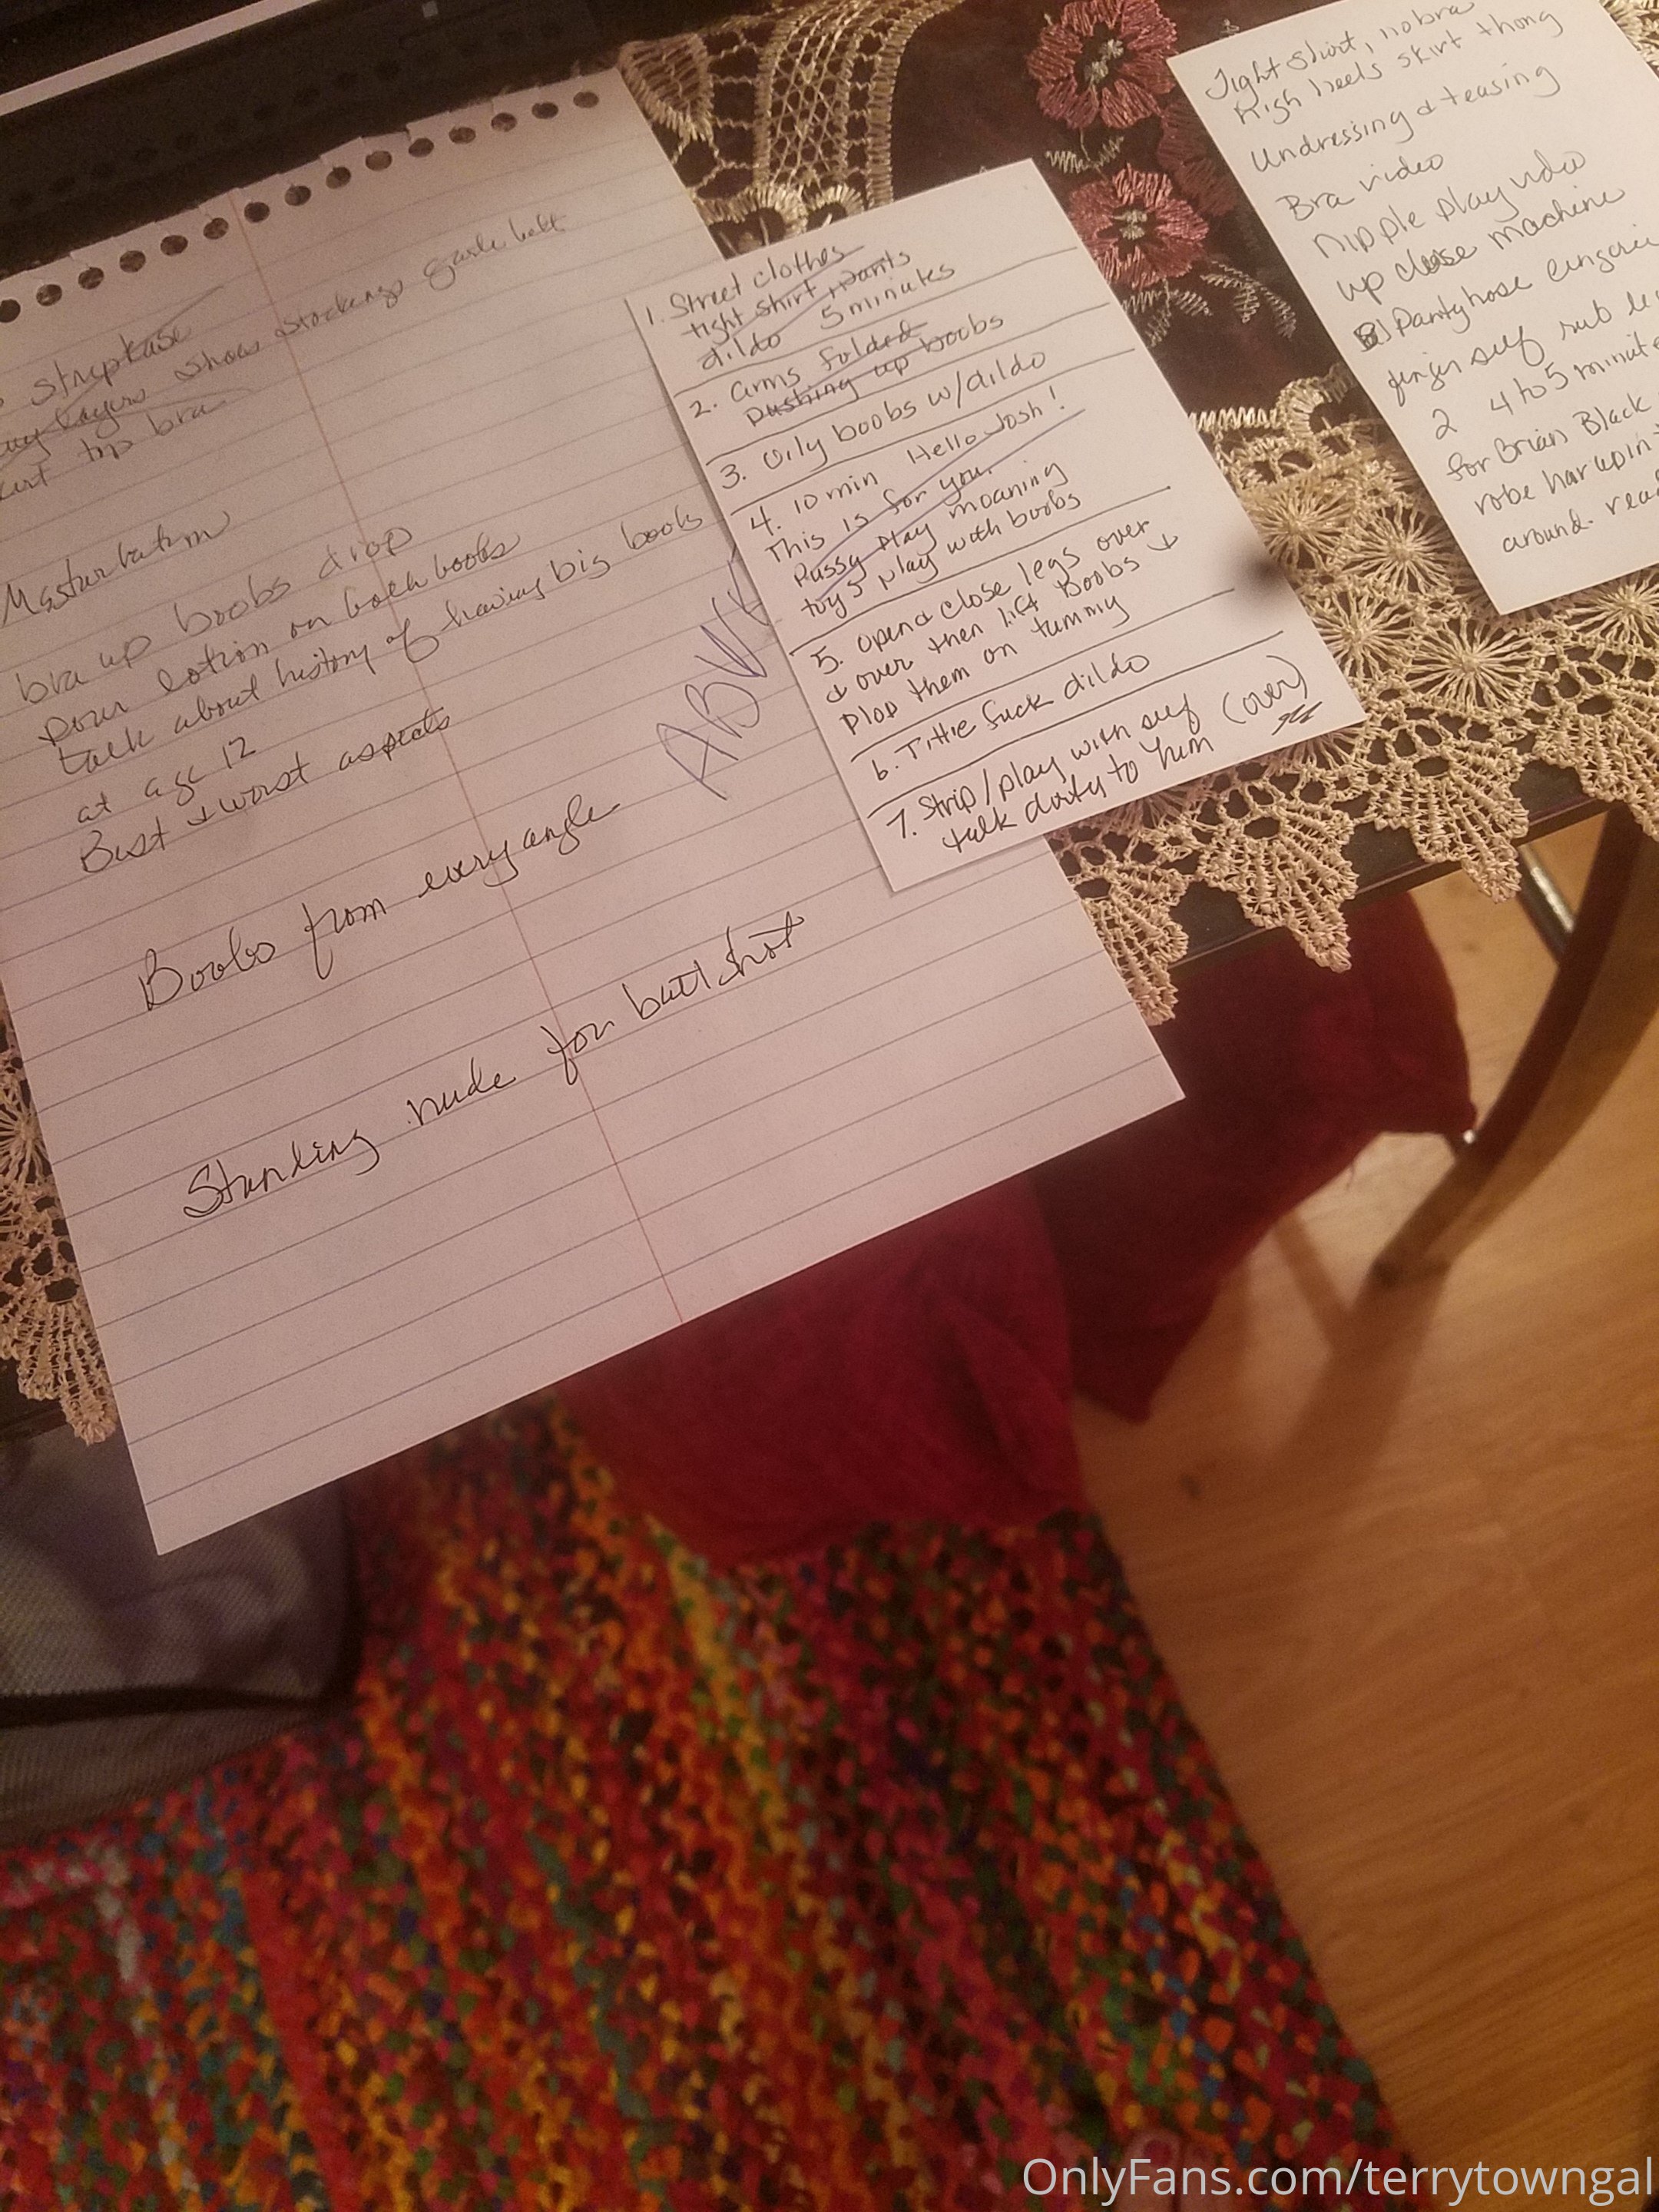 striptease
layers shoes stockings garter belt
top bra
Masturbation
bra up boobs drop
pour lotion on both boobs
Best & worst aspects
Boobs from every angle
Standing nude for butt shot
1. Street clothes
tight shirt, pants
dildo 5 minutes
2. arms folded
pushing up boobs
3. Oily boobs w/dildo
4. 10 min Hello Josh!
This is for you.
Pussy play moaning
toys play with boobs
5. open & close legs over
& over then lift Boobs &
plop them on tummy
6. Tittie fuck dildo
7. Strip/play with self (over)
talk dirty to him
Tight shirt, no bra
high heels skirt thong
Undressing & teasing
Bra video
nipple play video
up close machine
Pantyhose
finger self rub
2 4 to 5 minute
for Brian Black
robe hair up in
around.
OnlyFans.com/terrytowngal